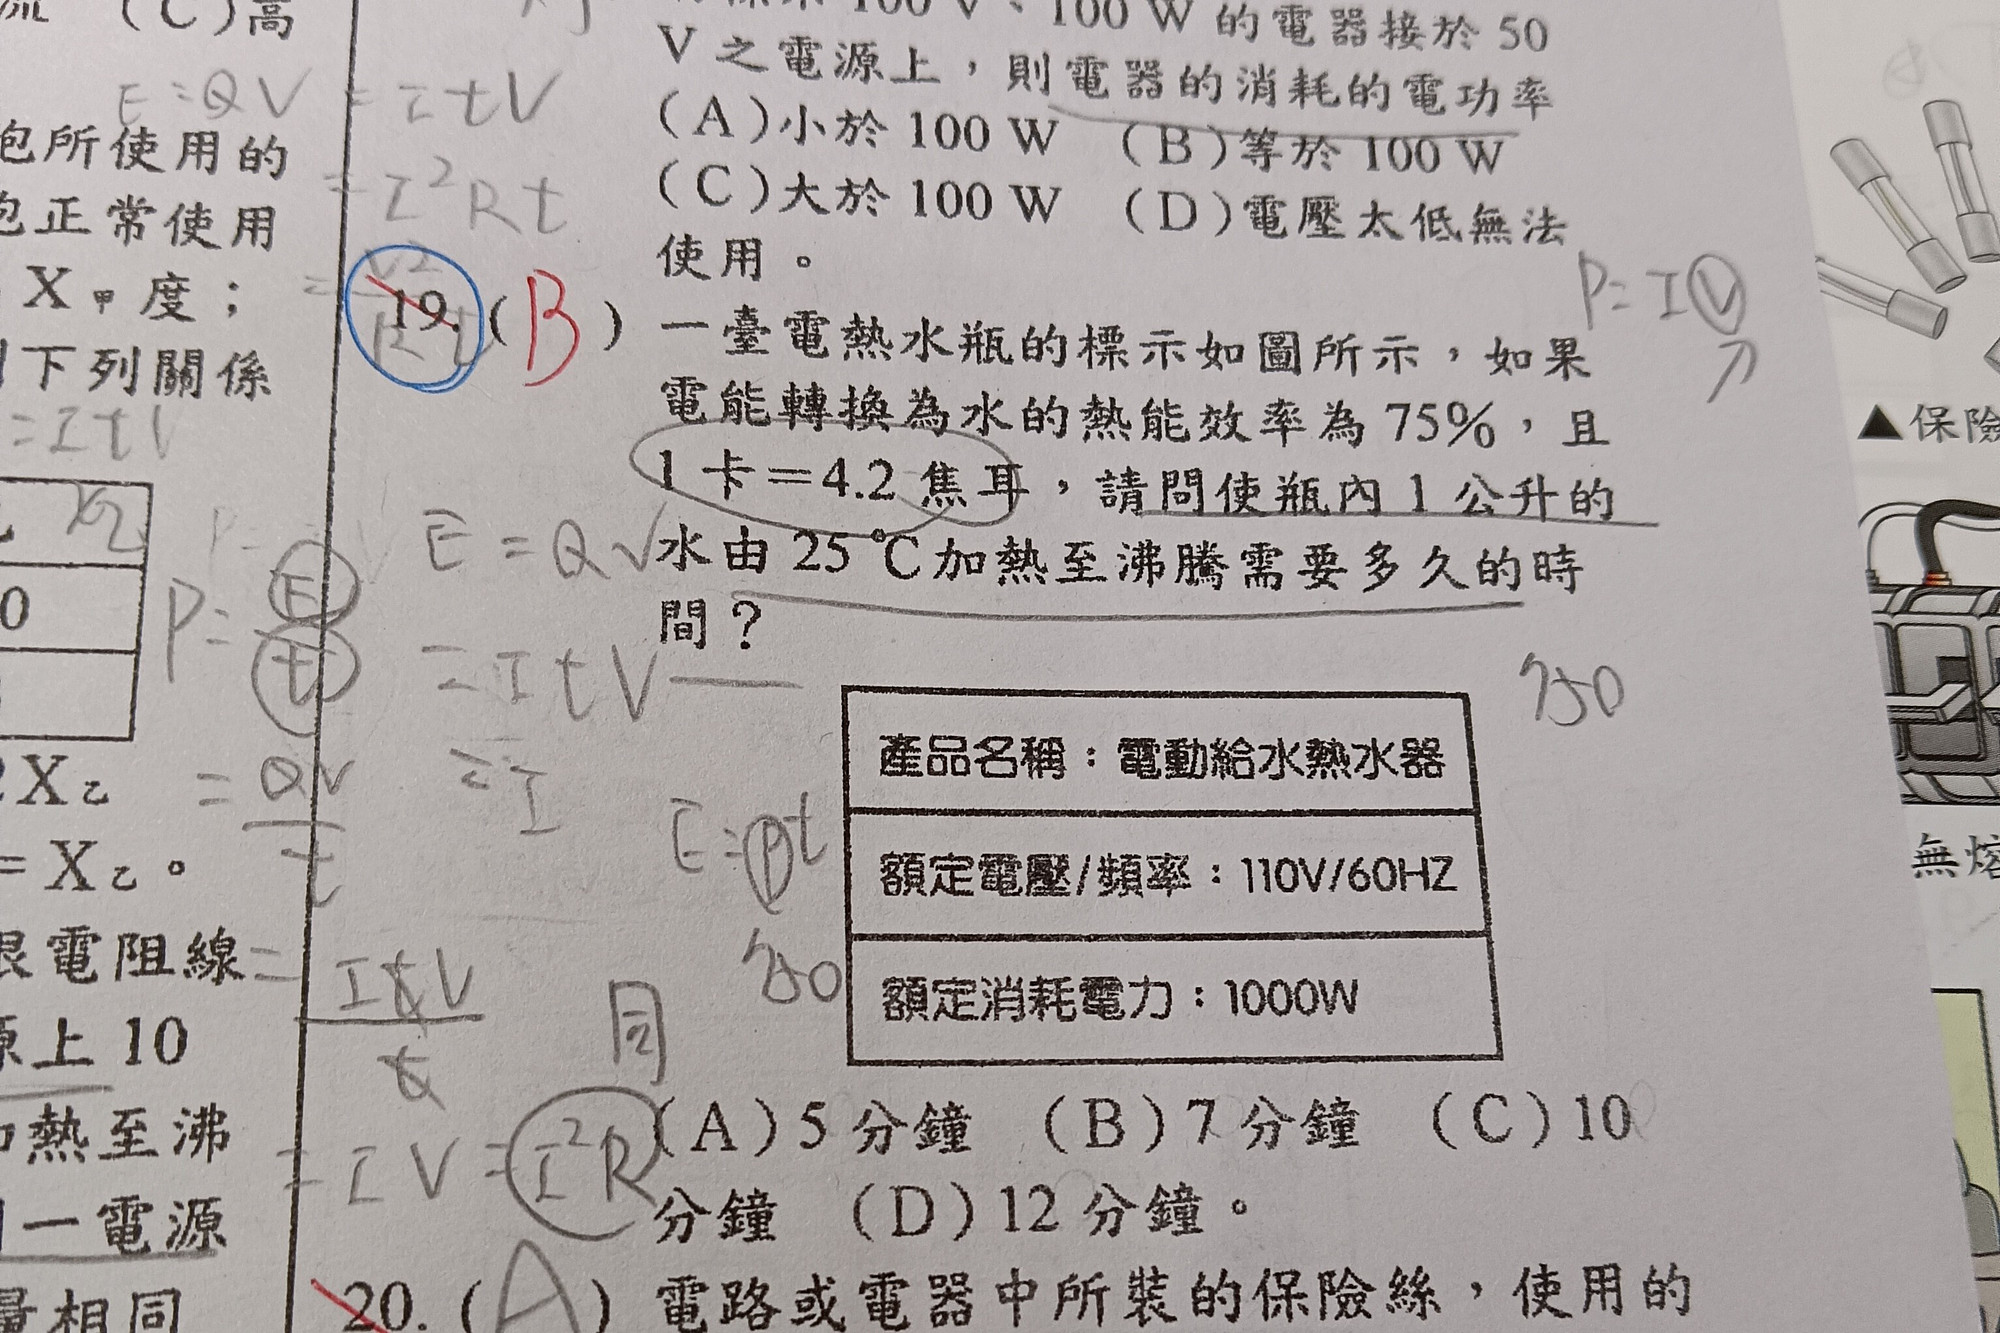 流 (C)高
E=QV=ItV
泡所使用的
=I²Rt
泡正常使用
X甲度；
下列關係
=ItV
100 V、100 W 的電器接於 50
V 之電源上，則電器的消耗的電功率
(A)小於 100 W (B)等於 100 W
(C)大於 100 W (D)電壓太低無法
使用。
P=IV
19.(B) 一臺電熱水瓶的標示如圖所示，如果
電能轉換為水的熱能效率為 75%，且
1 卡＝4.2 焦耳，請問使瓶內 1 公升的
水由 25 ℃加熱至沸騰需要多久的時
間？
E=QV
=ItV
=I
P=E/t
=QV/t
=ItV/t
=IV=I²R
E=Pt
750
750
同
產品名稱：電動給水熱水器
額定電壓/頻率：110V/60HZ
額定消耗電力：1000W
(A)5 分鐘 (B)7 分鐘 (C)10
分鐘 (D)12 分鐘。
20.(A) 電路或電器中所裝的保險絲，使用的
0
2X乙
=X乙。
限電阻線
源上 10
加熱至沸
一電源
量相同
▲保險
無熔